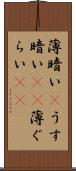 薄暗いうす
暗い薄ぐ
らい